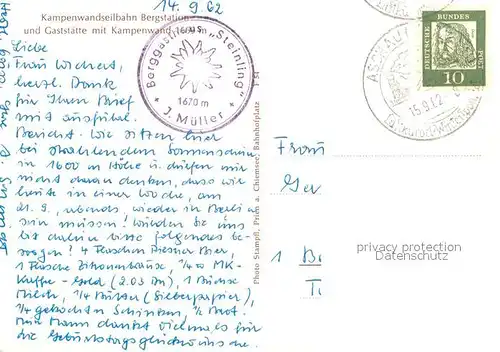 14.9.62
Kampenwandseilbahn Bergstation
und Gaststätte mit Kampenwand
Berggasthaus „Steinling"
1670 m
J. Müller
DEUTSCHE BUNDES POST
10
ASCHAU
15.9.62
Liebe
Frau
herzl. Dank
für Ihren Brief
mit ausführl.
Bericht. Wir sitzen hier
bei strahlendem Sonnenschein
in 1600 m Höhe u. dürfen mir
nicht daran denken, dass wir
heute in einer Woche, am
21.9., abends wieder in Berlin
sein müssen! Würden Sie uns
bis dahin bitte folgendes be-
sorgen? 4 Flaschen Bier,
1 Flasche 1/4 MK-
Kaffee-Gold (2.03 DM), 1 Büchse
Milch, 1/4 Butter (Silberpapier),
1/4 gekochten Schinken, 1/2 Brot.
Mein Mann dankt vielmals für
die Geburtstagsglückwünsche.
Photo Stampfl, Prien a. Chiemsee, Bahnhofplatz
Frau
1
privacy protection
Datenschutz